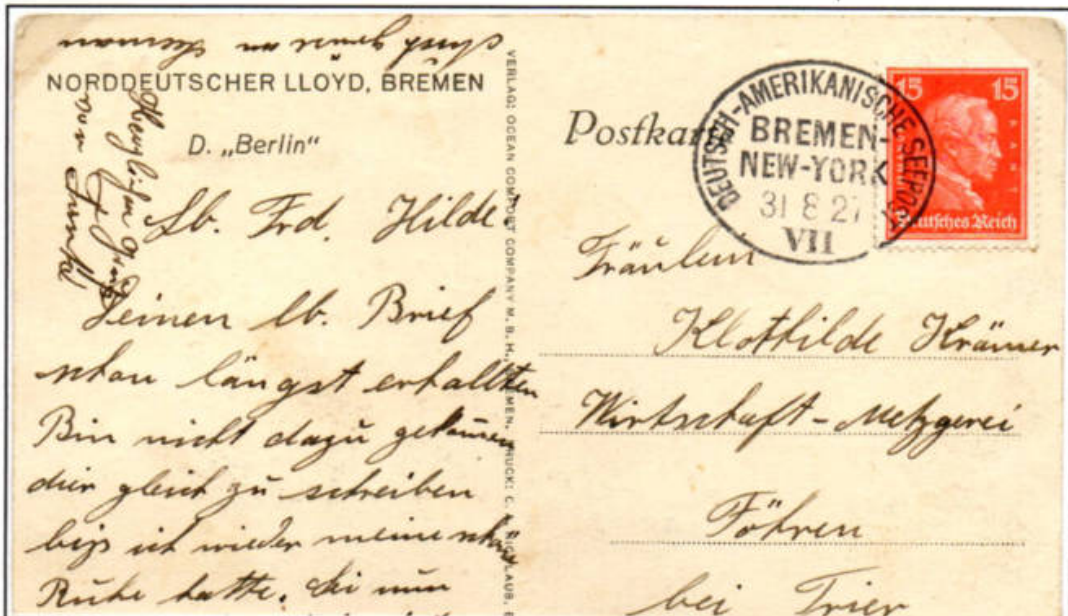 NORDDEUTSCHER LLOYD, BREMEN
D. „Berlin“
Lb. Frd. Hilde!
Deinen lb. Brief
schon längst erhallten
Bin nicht dazu gekommen
dier gleich zu schreiben
biss ich wieder meine
Ruhe hatte. Sei nun
VERLAG: OCEAN COMFORT COMPANY M. B. H., BREMEN. DRUCK: C.
Postkarte
DEUTSCH-AMERIKANISCHE SEEPOST
BREMEN-
NEW-YORK
31 8 27
VII
15 15
Deutsches Reich
Fräulein
Klothilde Krämer
Wirtschaft-Metzgerei
Föhren
bei Trier